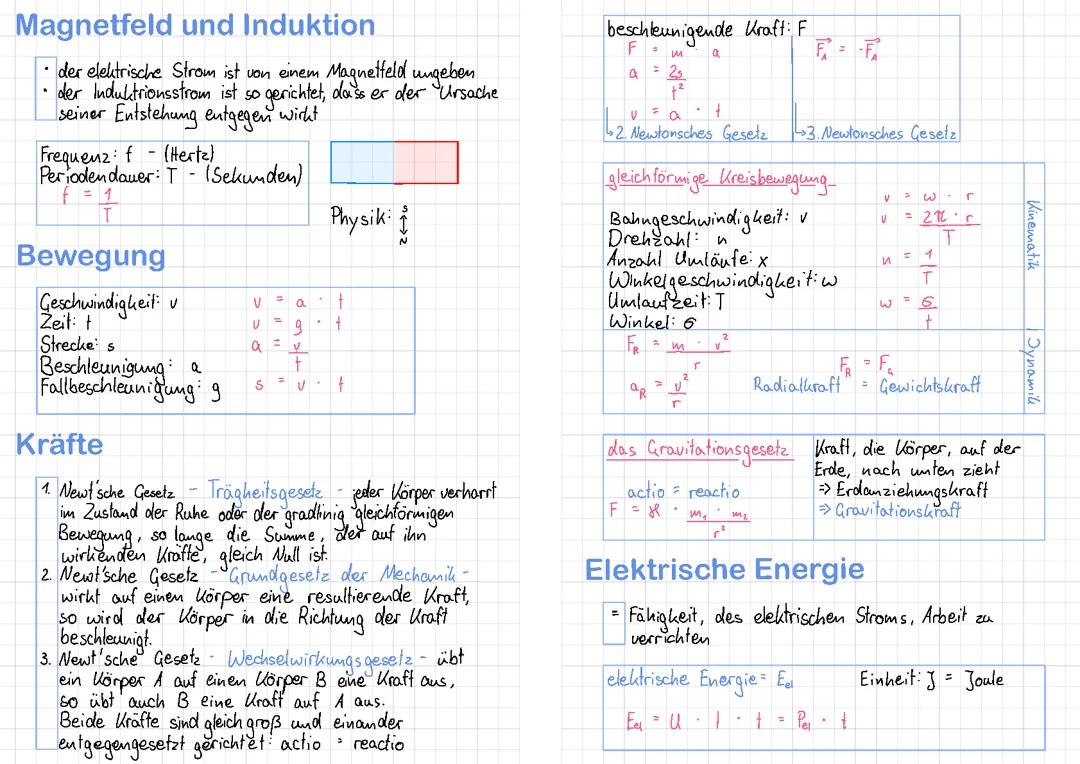 Magnetfeld und Induktion
• der elektrische Strom ist von einem Magnetfeld umgeben
• der Induktrionsstrom ist so gerichtet, dass er der Ursache
seiner Entstehung entgegen wirkt
Frequenz: f - (Hertz)
Periodendauer: T - (Sekunden)
f = 1/T
Physik: S ↕ N
Bewegung
Geschwindigkeit: v   v = a · t
Zeit: t   v = g · t
Strecke: s   a = v/t
Beschleunigung: a
Fallbeschleunigung: g   s = v · t
Kräfte
1. Newt'sche Gesetz - Trägheitsgesetz - jeder Körper verharrt
im Zustand der Ruhe oder der gradlinig gleichförmigen
Bewegung, so lange die Summe, der auf ihn
wirkenden Kräfte, gleich Null ist.
2. Newt'sche Gesetz - Grundgesetz der Mechanik -
wirkt auf einen Körper eine resultierende Kraft,
so wird der Körper in die Richtung der Kraft
beschleunigt.
3. Newt'sche Gesetz - Wechselwirkungsgesetz - übt
ein Körper A auf einen Körper B eine Kraft aus,
so übt auch B eine Kraft auf A aus.
Beide Kräfte sind gleich groß und einander
entgegengesetzt gerichtet: actio = reactio
beschleunigende Kraft: F
F = m · a   F⃗_A = -F⃗_A
a = 2s/t²
v = a · t
↳ 2. Newtonsches Gesetz   ↳ 3. Newtonsches Gesetz
gleichförmige Kreisbewegung
v = w · r
Bahngeschwindigkeit: v   v = 2π · r/T
Drehzahl: n
Anzahl Umläufe: x   n = 1/T
Winkelgeschwindigkeit: w
Umlaufzeit: T   w = σ/t
Winkel: σ
Kinematik
F_R = m · v²/r
F_R = F_G
a_R = v²/r   Radialkraft = Gewichtskraft
Dynamik
das Gravitationsgesetz
actio = reactio
F = ϰ · m₁ · m₂/r²
Kraft, die Körper, auf der
Erde, nach unten zieht
⇒ Erdanziehungskraft
⇒ Gravitationskraft
Elektrische Energie
= Fähigkeit, des elektrischen Stroms, Arbeit zu
verrichten
elektrische Energie = E_el   Einheit: J = Joule
E_el = U · I · t = P_el · t